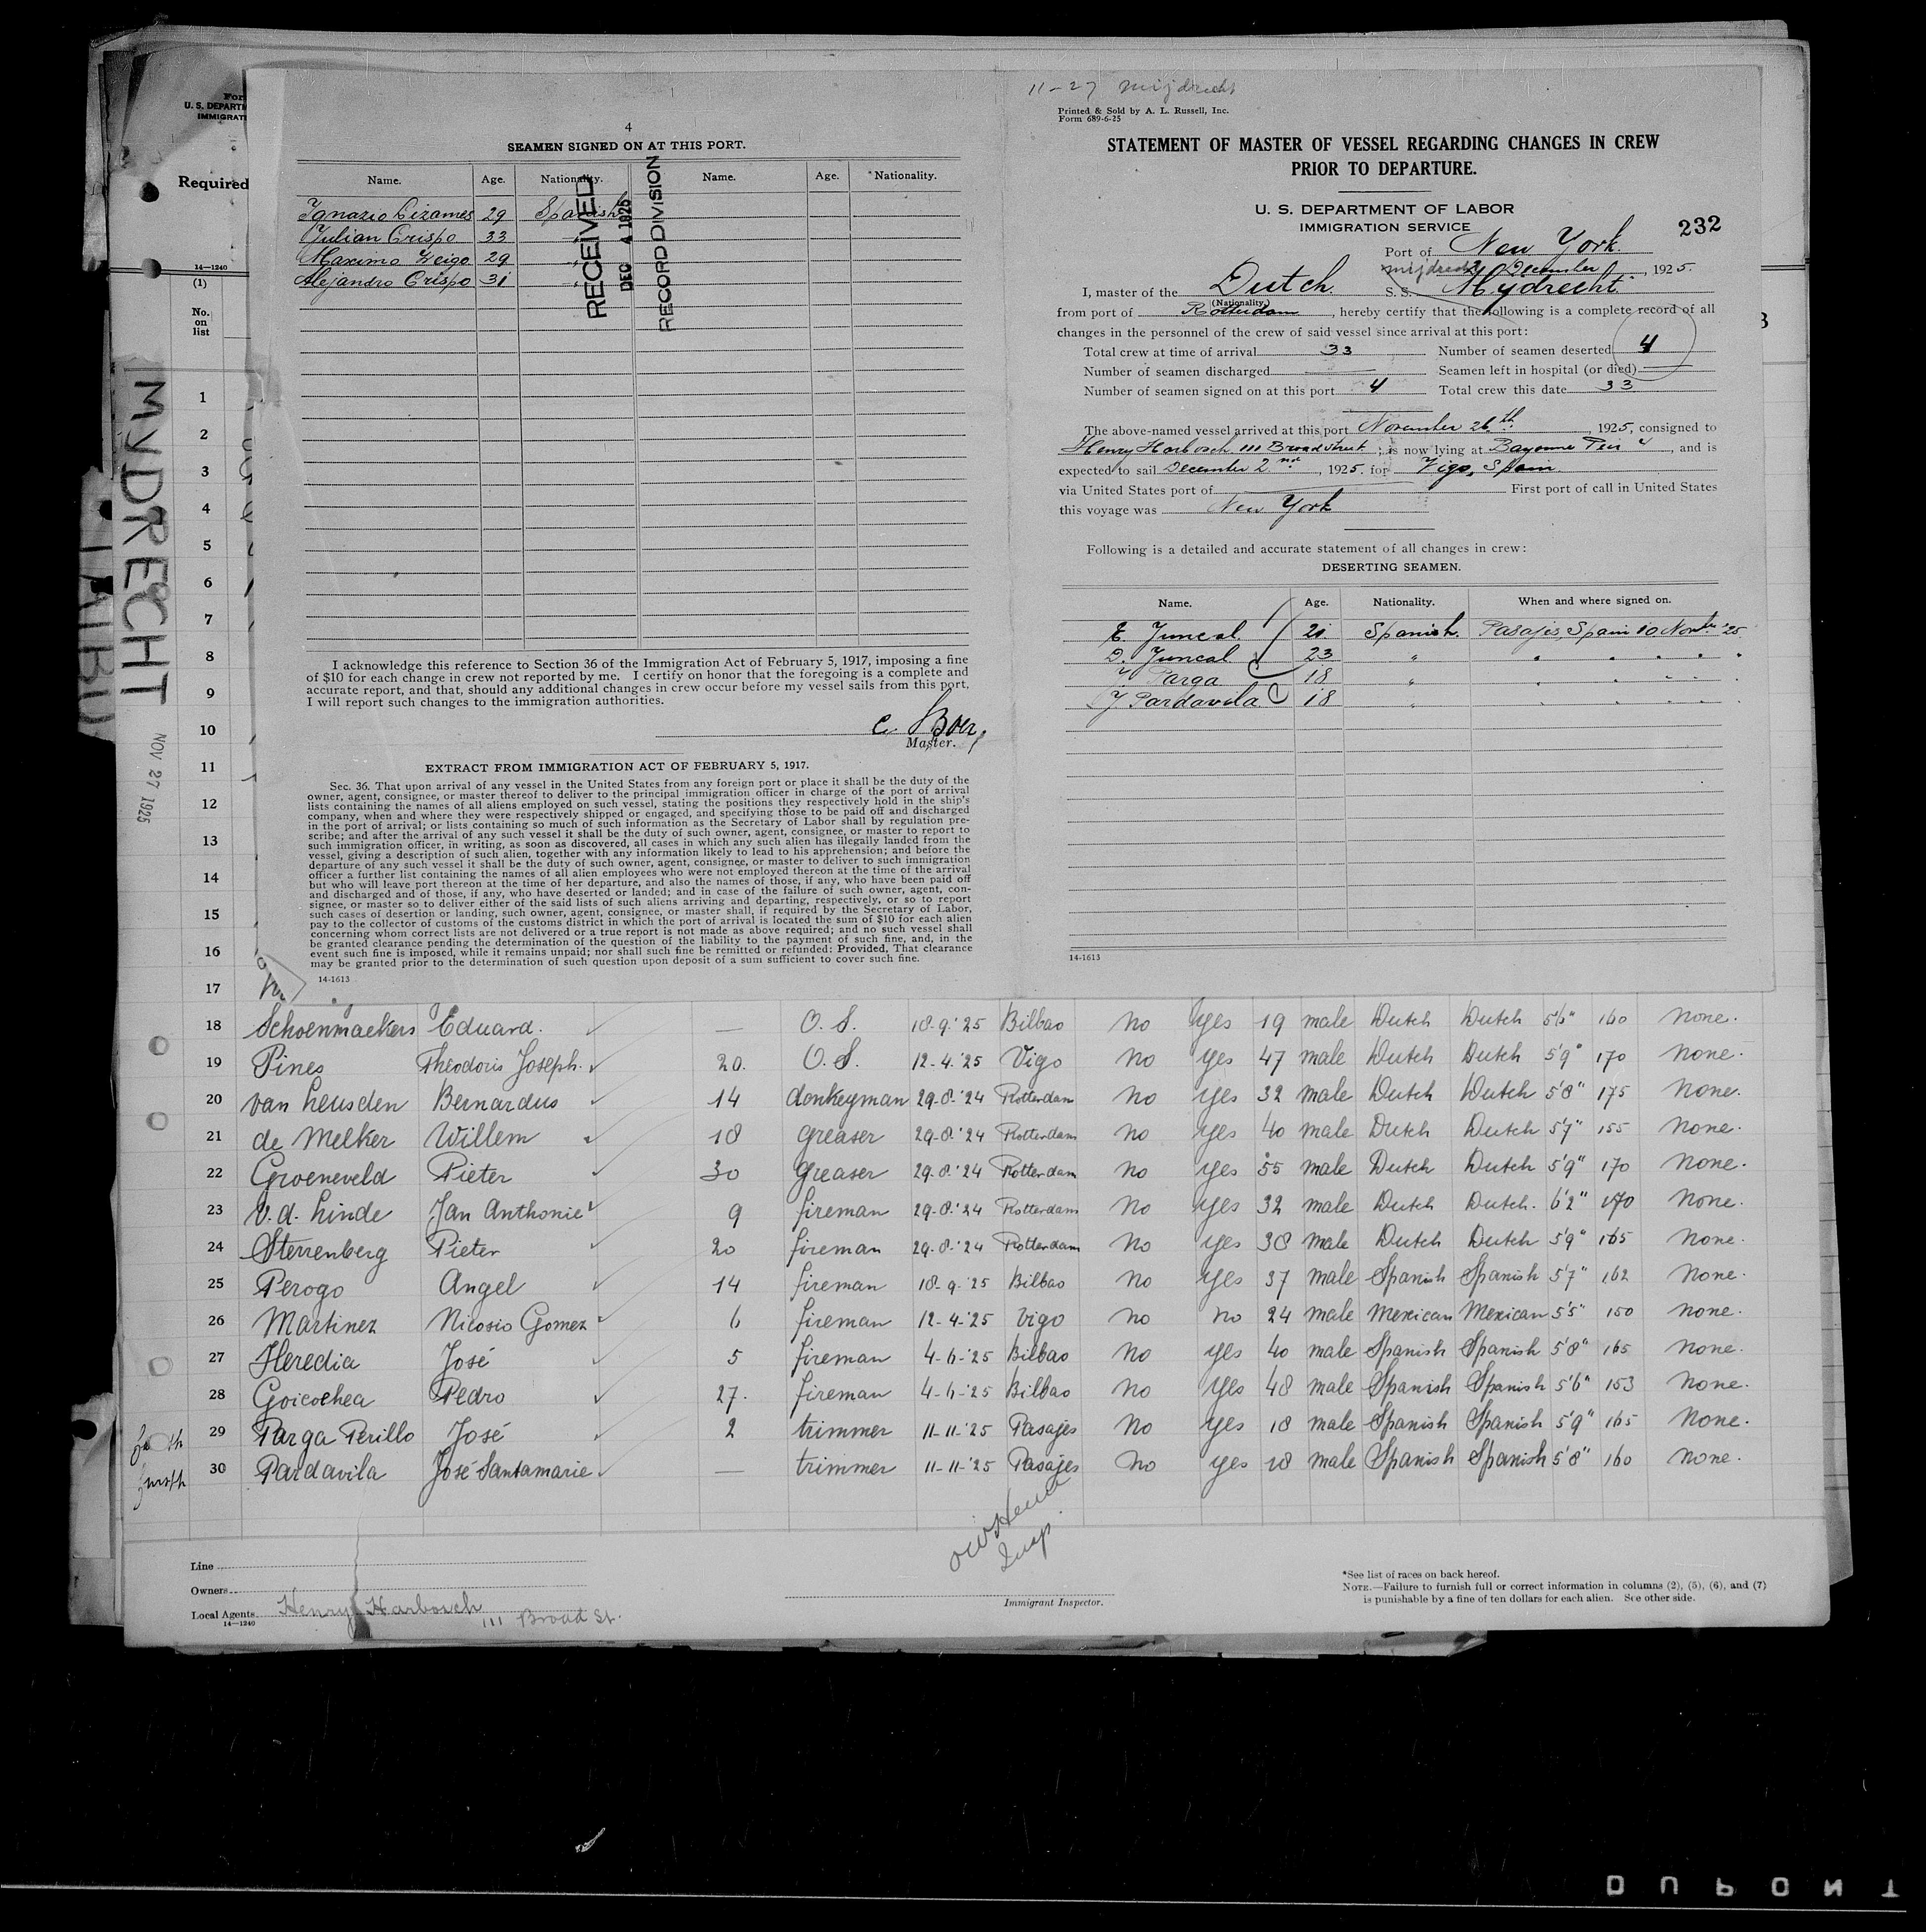 11-27 Mijdrecht
For
U. S. DEPARTM
IMMIGRATI
Required
14—1240
(1)
No.
on
list
MYDRECHT
NOV 27 1925
4
SEAMEN SIGNED ON AT THIS PORT.
Name. Age. Nationality. Name. Age. *Nationality.
Ignazio Cizames 29 Spanish
Julian Crispo 33 "
Maximo Veigo 29 "
Alejandro Crispo 31 "
RECEIVED
DEC 4 1925
RECORD DIVISION
I acknowledge this reference to Section 36 of the Immigration Act of February 5, 1917, imposing a fine
of $10 for each change in crew not reported by me. I certify on honor that the foregoing is a complete and
accurate report, and that, should any additional changes in crew occur before my vessel sails from this port,
I will report such changes to the immigration authorities.
C. Boer,
Master.
EXTRACT FROM IMMIGRATION ACT OF FEBRUARY 5, 1917.
Sec. 36. That upon arrival of any vessel in the United States from any foreign port or place it shall be the duty of the
owner, agent, consignee, or master thereof to deliver to the principal immigration officer in charge of the port of arrival
lists containing the names of all aliens employed on such vessel, stating the positions they respectively hold in the ship's
company, when and where they were respectively shipped or engaged, and specifying those to be paid off and discharged
in the port of arrival; or lists containing so much of such information as the Secretary of Labor shall by regulation pre-
scribe; and after the arrival of any such vessel it shall be the duty of such owner, agent, consignee, or master to report to
such immigration officer, in writing, as soon as discovered, all cases in which any such alien has illegally landed from the
vessel, giving a description of such alien, together with any information likely to lead to his apprehension; and before the
departure of any such vessel it shall be the duty of such owner, agent, consignee, or master to deliver to such immigration
officer a further list containing the names of all alien employees who were not employed thereon at the time of the arrival
but who will leave port thereon at the time of her departure, and also the names of those, if any, who have been paid off
and discharged and of those, if any, who have deserted or landed; and in case of the failure of such owner, agent, con-
signee, or master so to deliver either of the said lists of such aliens arriving and departing, respectively, or so to report
such cases of desertion or landing, such owner, agent, consignee, or master shall, if required by the Secretary of Labor,
pay to the collector of customs of the customs district in which the port of arrival is located the sum of $10 for each alien
concerning whom correct lists are not delivered or a true report is not made as above required; and no such vessel shall
be granted clearance pending the determination of the question of the liability to the payment of such fine, and, in the
event such fine is imposed, while it remains unpaid; nor shall such fine be remitted or refunded: Provided, That clearance
may be granted prior to the determination of such question upon deposit of a sum sufficient to cover such fine.
14-1613
Printed & Sold by A. L. Russell, Inc.
Form 689-6-25
STATEMENT OF MASTER OF VESSEL REGARDING CHANGES IN CREW
PRIOR TO DEPARTURE.
U. S. DEPARTMENT OF LABOR
IMMIGRATION SERVICE
232
Port of New York.
Mijdrecht 2 December, 1925.
I, master of the Dutch S. S. Mydrecht
(Nationality.)
from port of Rotterdam, hereby certify that the following is a complete record of all
changes in the personnel of the crew of said vessel since arrival at this port:
Total crew at time of arrival 33 Number of seamen deserted 4
Number of seamen discharged — Seamen left in hospital (or died) —
Number of seamen signed on at this port 4 Total crew this date 33
The above-named vessel arrived at this port November 26th, 1925, consigned to
Henry Harbosch 111 Broad Street; is now lying at Bayonne Pier 4, and is
expected to sail December 2nd, 1925. for Vigo, Spain
via United States port of — First port of call in United States
this voyage was New York
Following is a detailed and accurate statement of all changes in crew:
DESERTING SEAMEN.
Name. Age. Nationality. When and where signed on.
E. Juncal 21 Spanish. Pasajes Spain 10 Novbr '25
D. Juncal 23 " " " " " "
J. Parga 18 " " " " " "
J Pardavila 18 " " " " " "
14-1613
1
2
3
4
5
6
7
8
9
10
11
12
13
14
15
16
17
18 Schoenmaekers Eduard. — O. S. 18-9-'25 Bilbao No yes 19 male Dutch Dutch 5'6" 160 None.
19 Pines Theodoris Joseph. 20. O. S. 12-4-'25 Vigo No yes 47 male Dutch Dutch 5'9" 170 None.
20 van Leusden Bernardus 14 donkeyman 29-8-'24 Rotterdam No yes 32 male Dutch Dutch 5'8" 175 None.
21 de Melker Willem 18 greaser 29-8-'24 Rotterdam No yes 40 male Dutch Dutch 5'7" 155 None.
22 Groeneveld Pieter 30 greaser 29-8-'24 Rotterdam No yes 55 male Dutch Dutch 5'9" 170 None.
23 v. d. Linde Jan Anthonie 9 fireman 29-8-'24 Rotterdam No yes 32 male Dutch Dutch. 6'2" 170 None.
24 Sterrenberg Pieter 20 fireman 29-8-'24 Rotterdam No yes 38 male Dutch Dutch 5'9" 165 None.
25 Perogo Angel 14 fireman 18-9-'25 Bilbao No yes 37 male Spanish Spanish 5'7" 162 None.
26 Martinez Nicosio Gomez 6 fireman 12-4-'25 Vigo No no 24 male Mexican Mexican 5'5" 150 None.
27 Heredia José 5 fireman 4-6-'25 Bilbao No yes 40 male Spanish Spanish 5'8" 165 None.
28 Goicochea Pedro 27. fireman 4-6-'25 Bilbao No yes 48 male Spanish Spanish 5'6" 153 None.
29 Parga Perillo José 2 trimmer 11-11-'25 Pasajes No yes 18 male Spanish Spanish 5'9" 165 None.
30 Pardavila José Santamarie — trimmer 11-11-'25 Pasajes No yes 18 male Spanish Spanish 5'8" 160 None.
Insp.
Line
Owners
Local Agents Henry Harbosch 111 Broad St.
14—1240
Immigrant Inspector.
*See list of races on back hereof.
NOTE.—Failure to furnish full or correct information in columns (2), (5), (6), and (7)
is punishable by a fine of ten dollars for each alien. See other side.
DUPONT